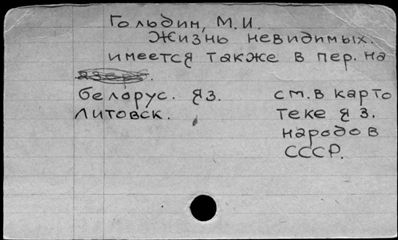 Гольдин, М.И.
Жизнь невидимых.
имеется также в пер. на
белорус. яз.
Литовск.
см. в карто
теке яз.
народов
СССР.